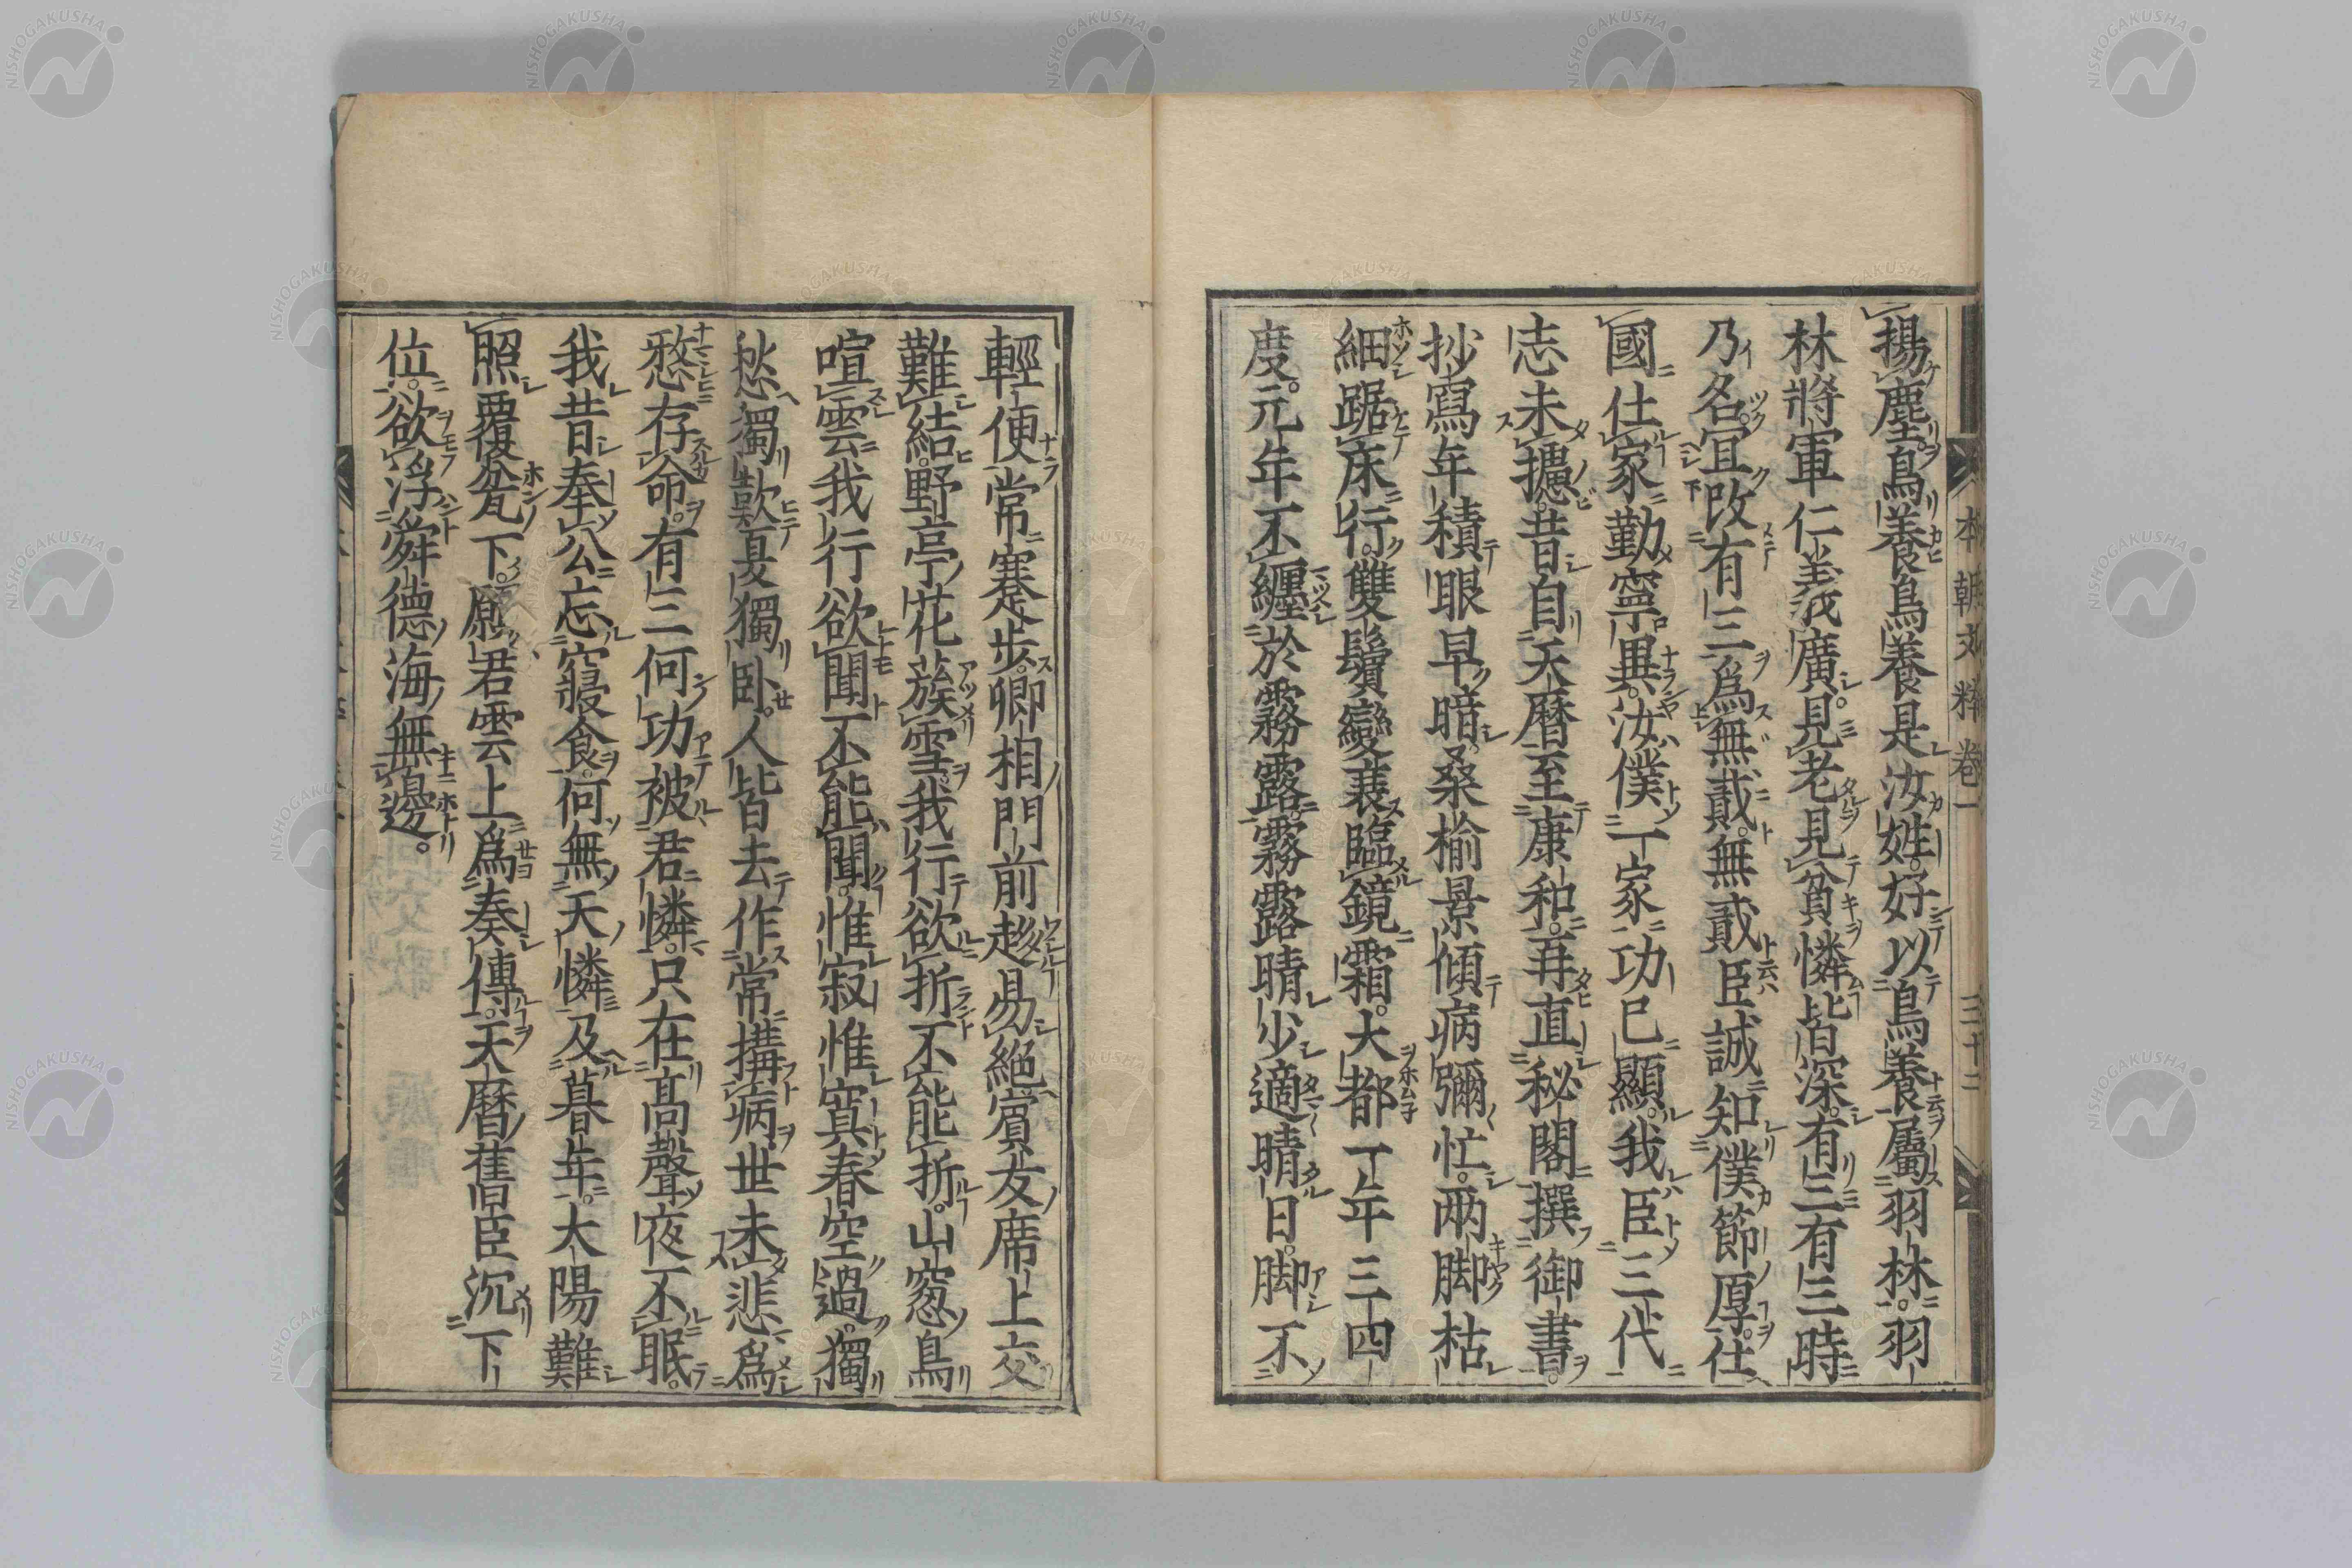 揚塵。鳥養鳥養是汝姓。好以鳥養屬羽林。羽
林將軍仁義廣。見老見貧憐皆深。有三有三時
乃名。宜改有三爲無貳。無貳臣誠知僕節厚。仕
國仕家勤寧異。汝僕一家功已顯。我臣三代
志未攄。昔自天曆至康和。再直秘閣撰御書。
抄寫年積眼早暗。桑榆景傾病彌忙。兩脚枯
細踞床行。雙鬢變衰臨鏡霜。大都一年三四
度。元年不纏於霧露。霧露晴少適晴日。脚不
本朝文粹 卷一 三十二
輕便常蹇步。卿相門前趍易絕。賓友席上交
難結。野亭花蔟雪。我行欲折不能折。山窓鳥
喧雲。我行欲聞不能聞。惟寂惟寞春空過。獨
愁獨歎夏獨臥。人皆去作常搆病。世未悲爲
憗存命。有三何功被君憐。只在高聲夜不眠。
我昔奉公忘寢食。何無天憐及暮年。大陽難
照覆瓫下。願君雲上爲奏傳。天曆舊臣沉下
位。欲浮舜德海無邊。
NISHOGAKUSHA